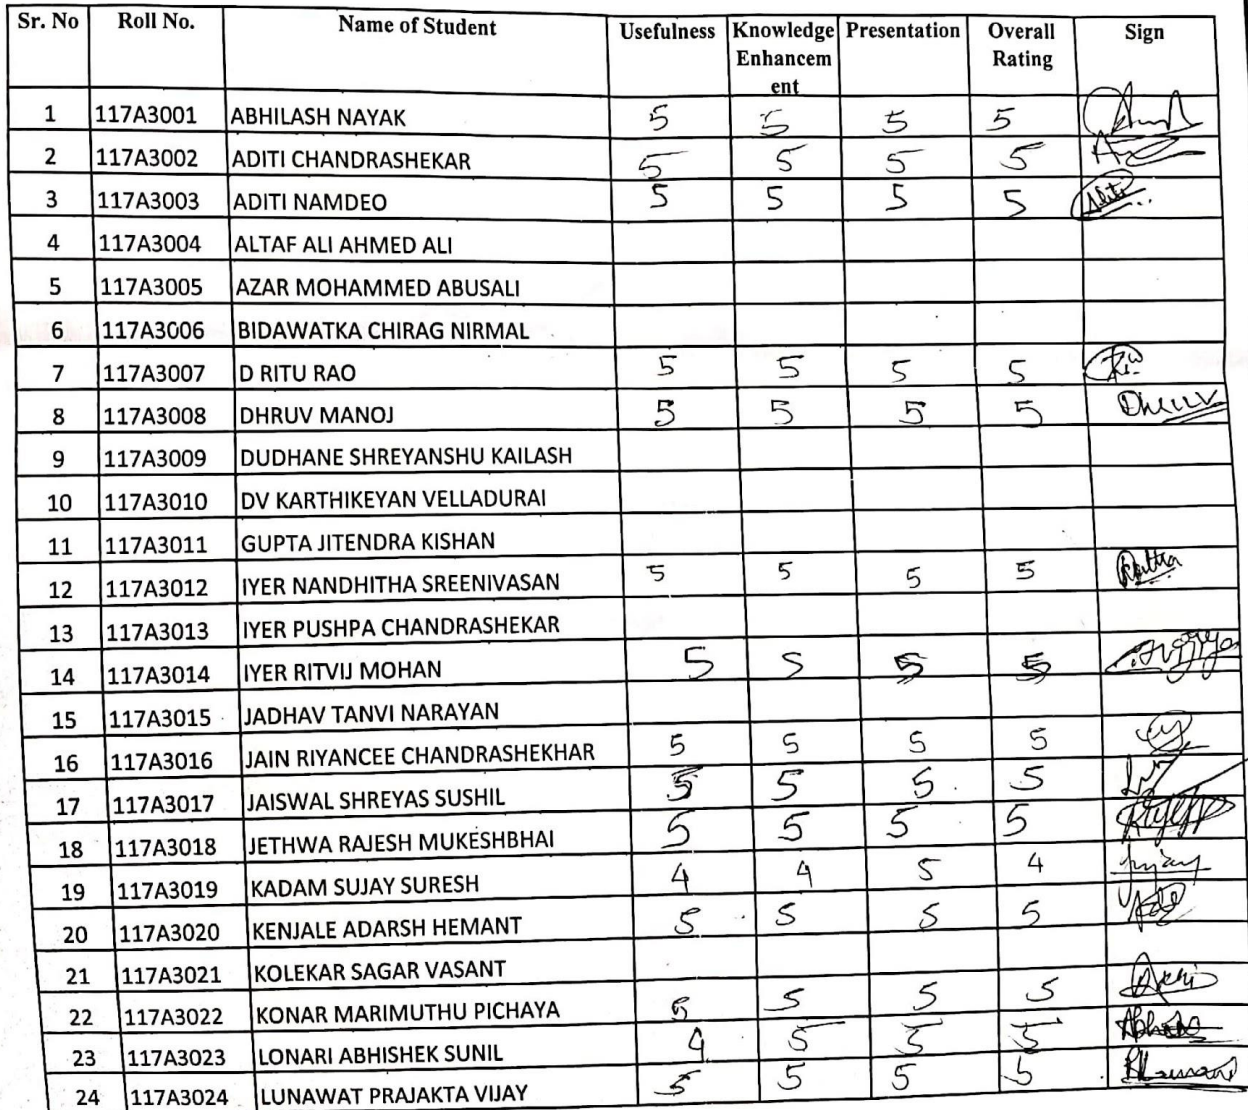 Sr. No Roll No. Name of Student Usefulness Knowledge Enhancem ent Presentation Overall Rating Sign
1 117A3001 ABHILASH NAYAK 5 5 5 5
2 117A3002 ADITI CHANDRASHEKAR 5 5 5 5
3 117A3003 ADITI NAMDEO 5 5 5 5 Aditi
4 117A3004 ALTAF ALI AHMED ALI
5 117A3005 AZAR MOHAMMED ABUSALI
6 117A3006 BIDAWATKA CHIRAG NIRMAL
7 117A3007 D RITU RAO 5 5 5 5
8 117A3008 DHRUV MANOJ 5 5 5 5 Dhruv
9 117A3009 DUDHANE SHREYANSHU KAILASH
10 117A3010 DV KARTHIKEYAN VELLADURAI
11 117A3011 GUPTA JITENDRA KISHAN
12 117A3012 IYER NANDHITHA SREENIVASAN 5 5 5 5
13 117A3013 IYER PUSHPA CHANDRASHEKAR
14 117A3014 IYER RITVIJ MOHAN 5 5 5 5
15 117A3015 JADHAV TANVI NARAYAN
16 117A3016 JAIN RIYANCEE CHANDRASHEKHAR 5 5 5 5
17 117A3017 JAISWAL SHREYAS SUSHIL 5 5 5 5
18 117A3018 JETHWA RAJESH MUKESHBHAI 5 5 5 5
19 117A3019 KADAM SUJAY SURESH 4 4 5 4 Sujay
20 117A3020 KENJALE ADARSH HEMANT 5 5 5 5
21 117A3021 KOLEKAR SAGAR VASANT
22 117A3022 KONAR MARIMUTHU PICHAYA 5 5 5 5
23 117A3023 LONARI ABHISHEK SUNIL 4 5 5 5
24 117A3024 LUNAWAT PRAJAKTA VIJAY 5 5 5 5